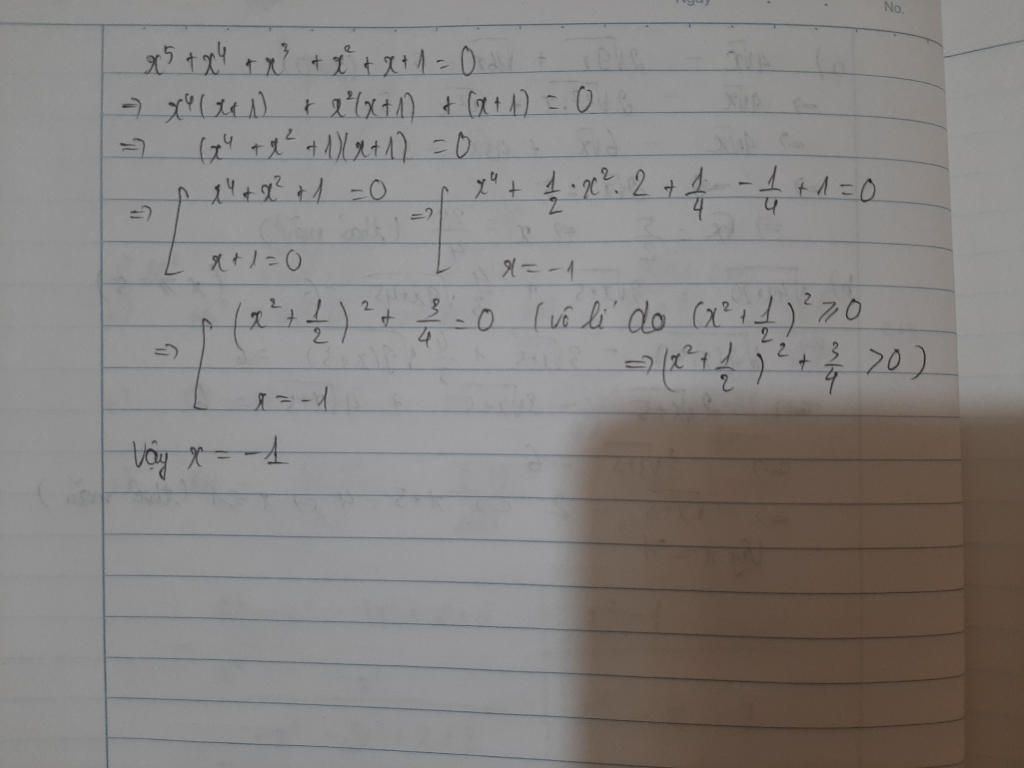 Ngày
No.
x⁵ + x⁴ + x³ + x² + x + 1 = 0
=> x⁴(x+1) + x²(x+1) + (x+1) = 0
=> (x⁴ + x² + 1)(x+1) = 0
=> [ x⁴ + x² + 1 = 0 => [ x⁴ + 1/2 · x² · 2 + 1/4 - 1/4 + 1 = 0
x + 1 = 0 x = -1
=> [ (x² + 1/2)² + 3/4 = 0 (vô lí do (x² + 1/2)² ⩾ 0
=> (x² + 1/2)² + 3/4 > 0)
x = -1
Vậy x = -1